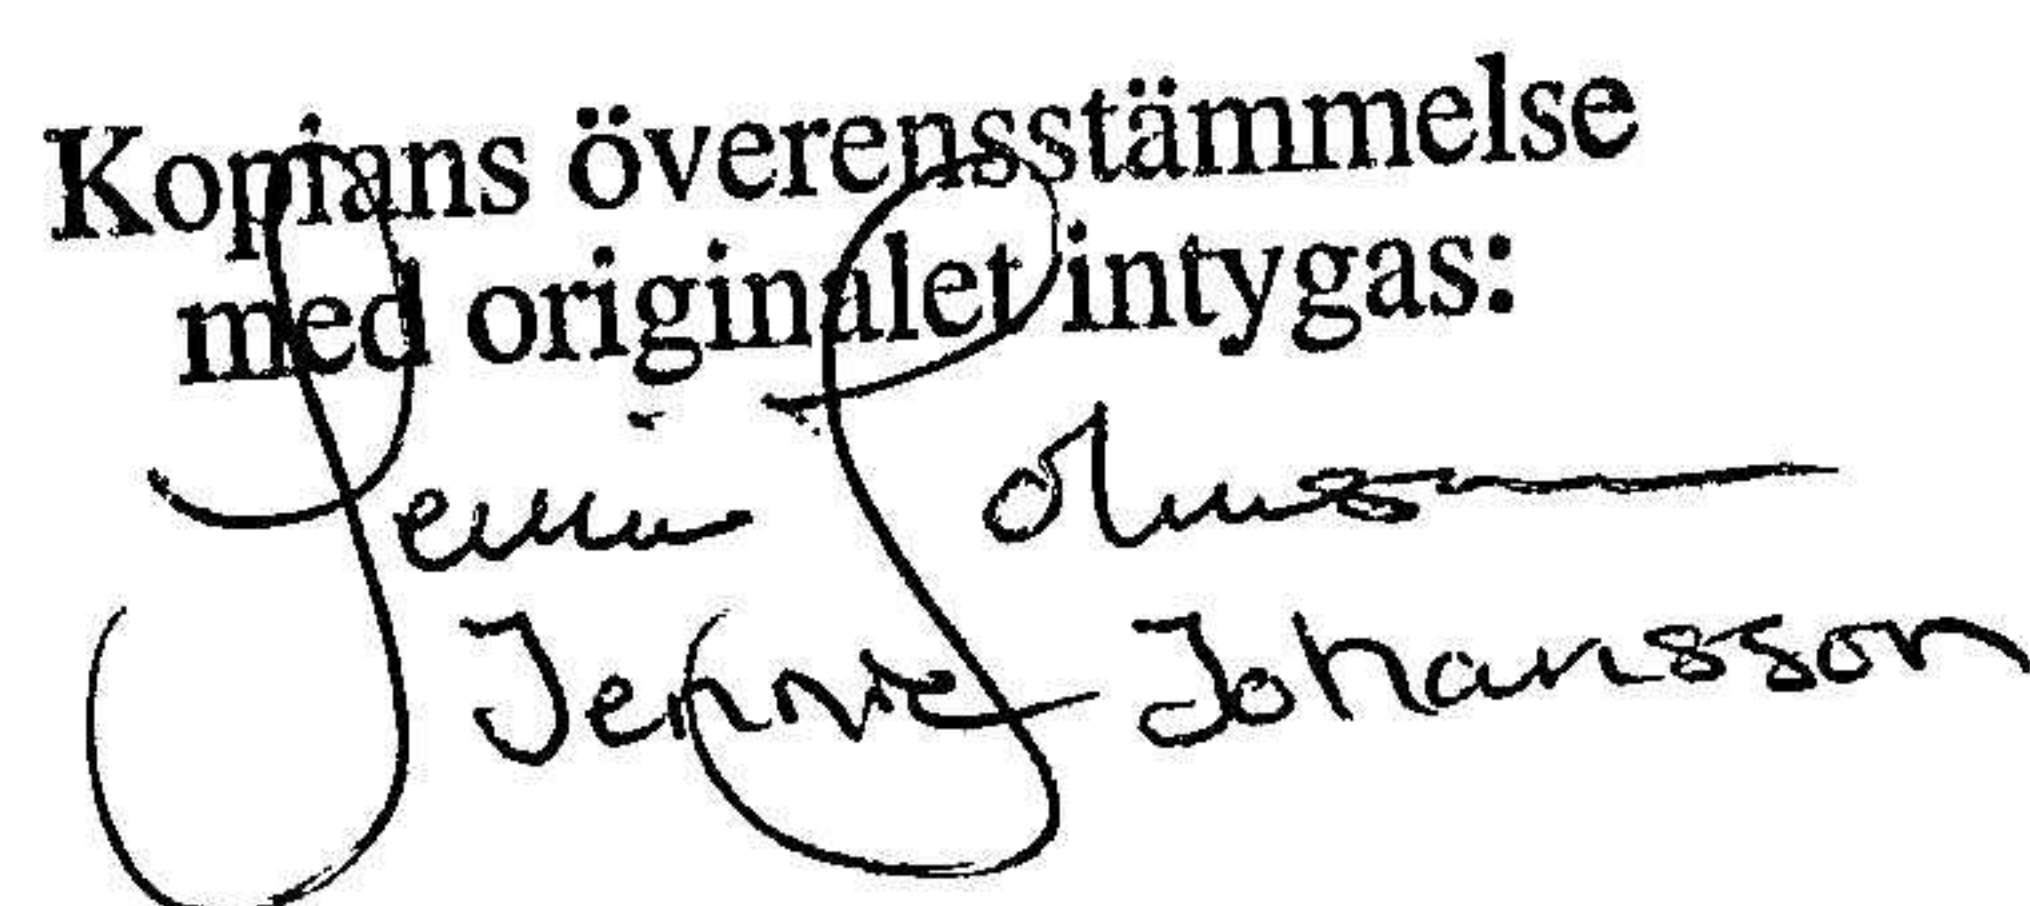 Kopians överensstämmelse
med originalet intygas:
Jennie Johansson
Jennie Johansson